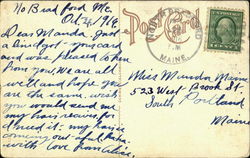 No Bradford Me.
Oct 24, 1916.
Dear Manda. Just
a line got your card
and was pleased to hear
from you. We are all
well and hope you
are the same. wish
you would send me
my hair
need it. my hair is
coming out
with love from
Post Card
MAINE
Miss Manda Munn
523 West Brook St.
South Portland
Maine